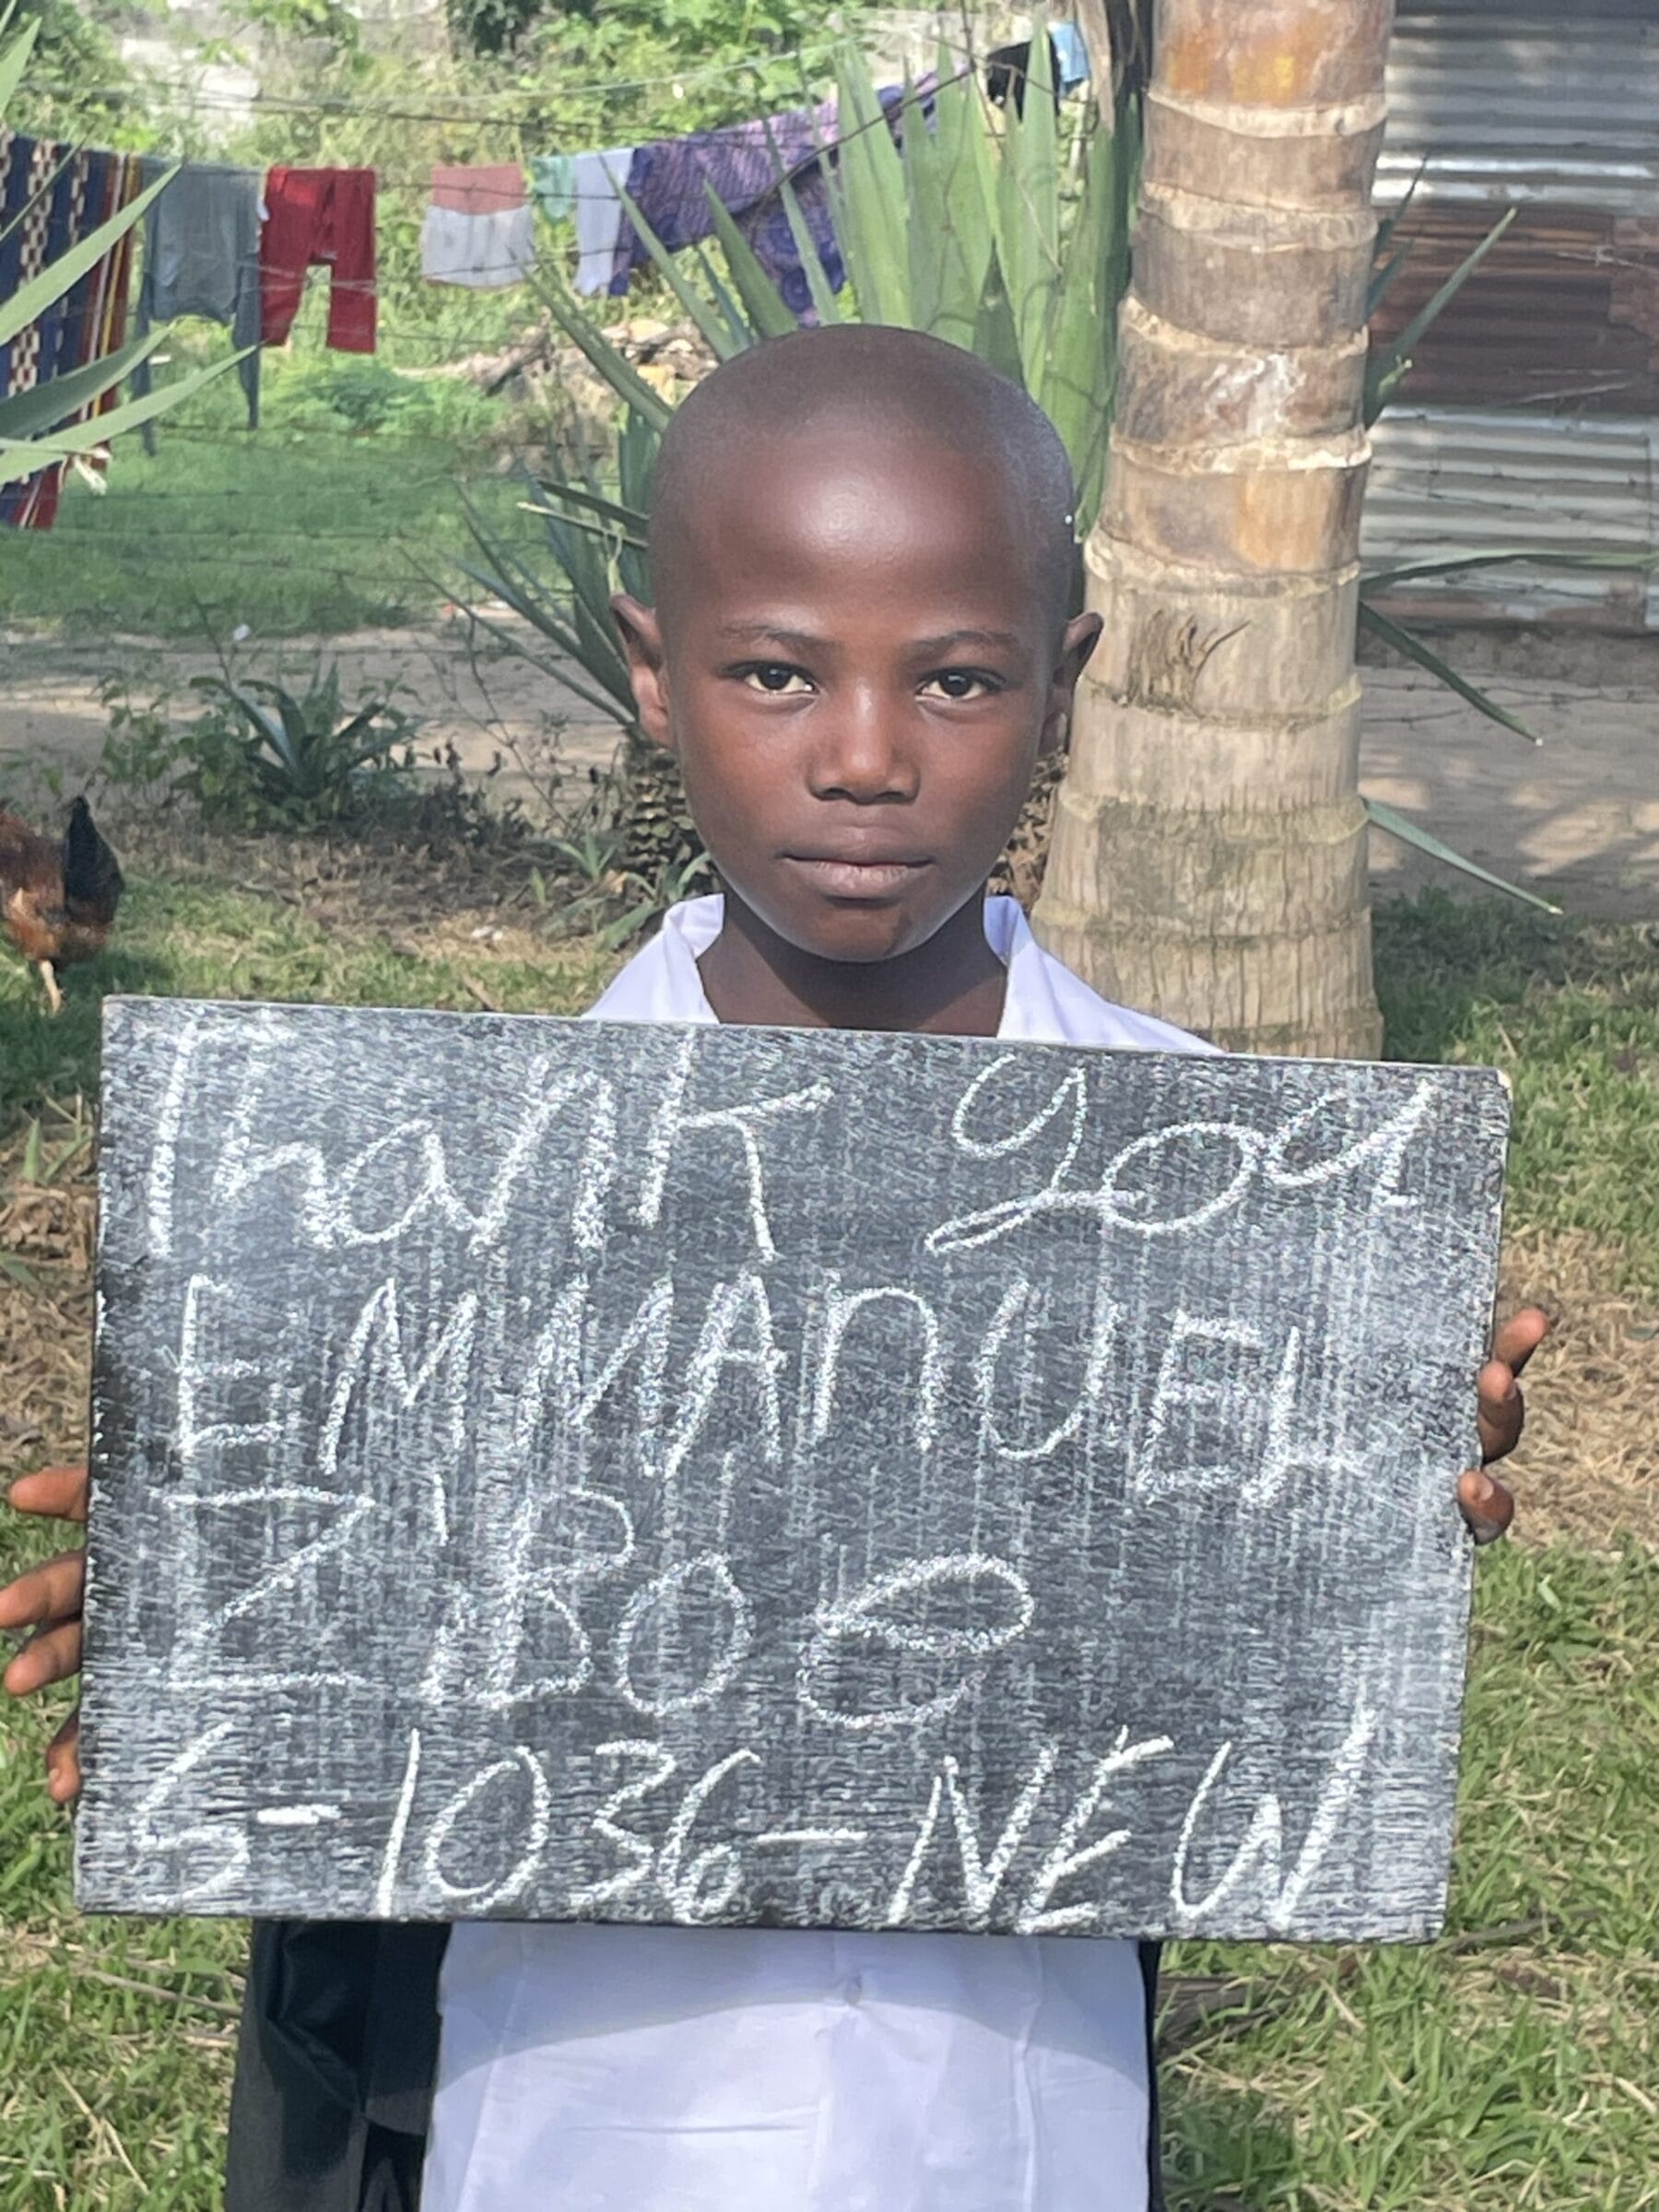 Thank you
EMMANUEL
ZiBO e
S-1036-NEW